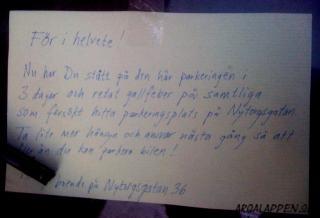 För i helvete!
Nu har Du stått på den här parkeringen i
3 dagar och retat gallfeber på samtliga
som försökt hitta parkeringsplats på Nytorgsgatan.
Ta lite mer hänsyn och ansvar nästa gång så att
fler än du kan parkera bilen!
boende på Nytorgsgatan 36
ARGALAPPEN.